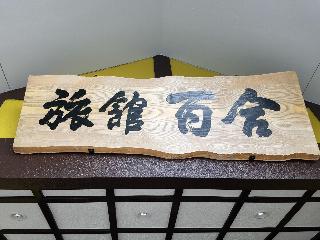 旅館 百合